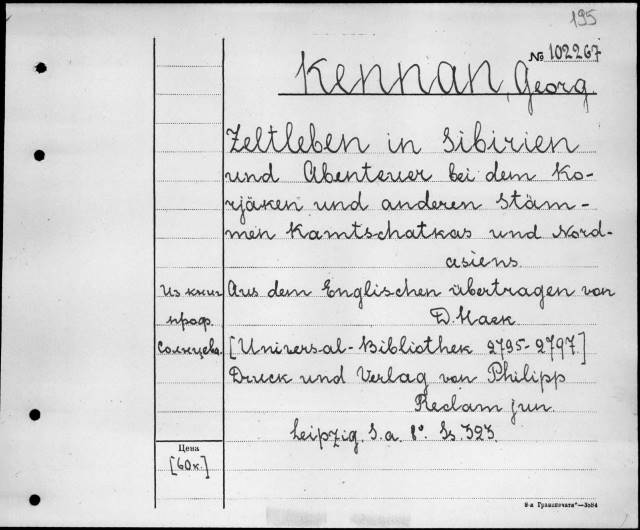 195
№ 102267
Kennan, Georg
Zeltleben in Sibirien
und Abenteuer bei dem Ko-
rjäken und anderen Stäm-
men Kamtschatkas und Nord-
asiens.
Из книг
Aus dem Englischen übertragen von
проф.
D. Haek.
Солнцева.
[Universal-Bibliothek 2795-2797]
Druck und Verlag von Philipp
Reclam jun.
Leipzig. S.a. 8°. Ss. 323.
Цена
[60к.]
8-я Транспечать"—3584